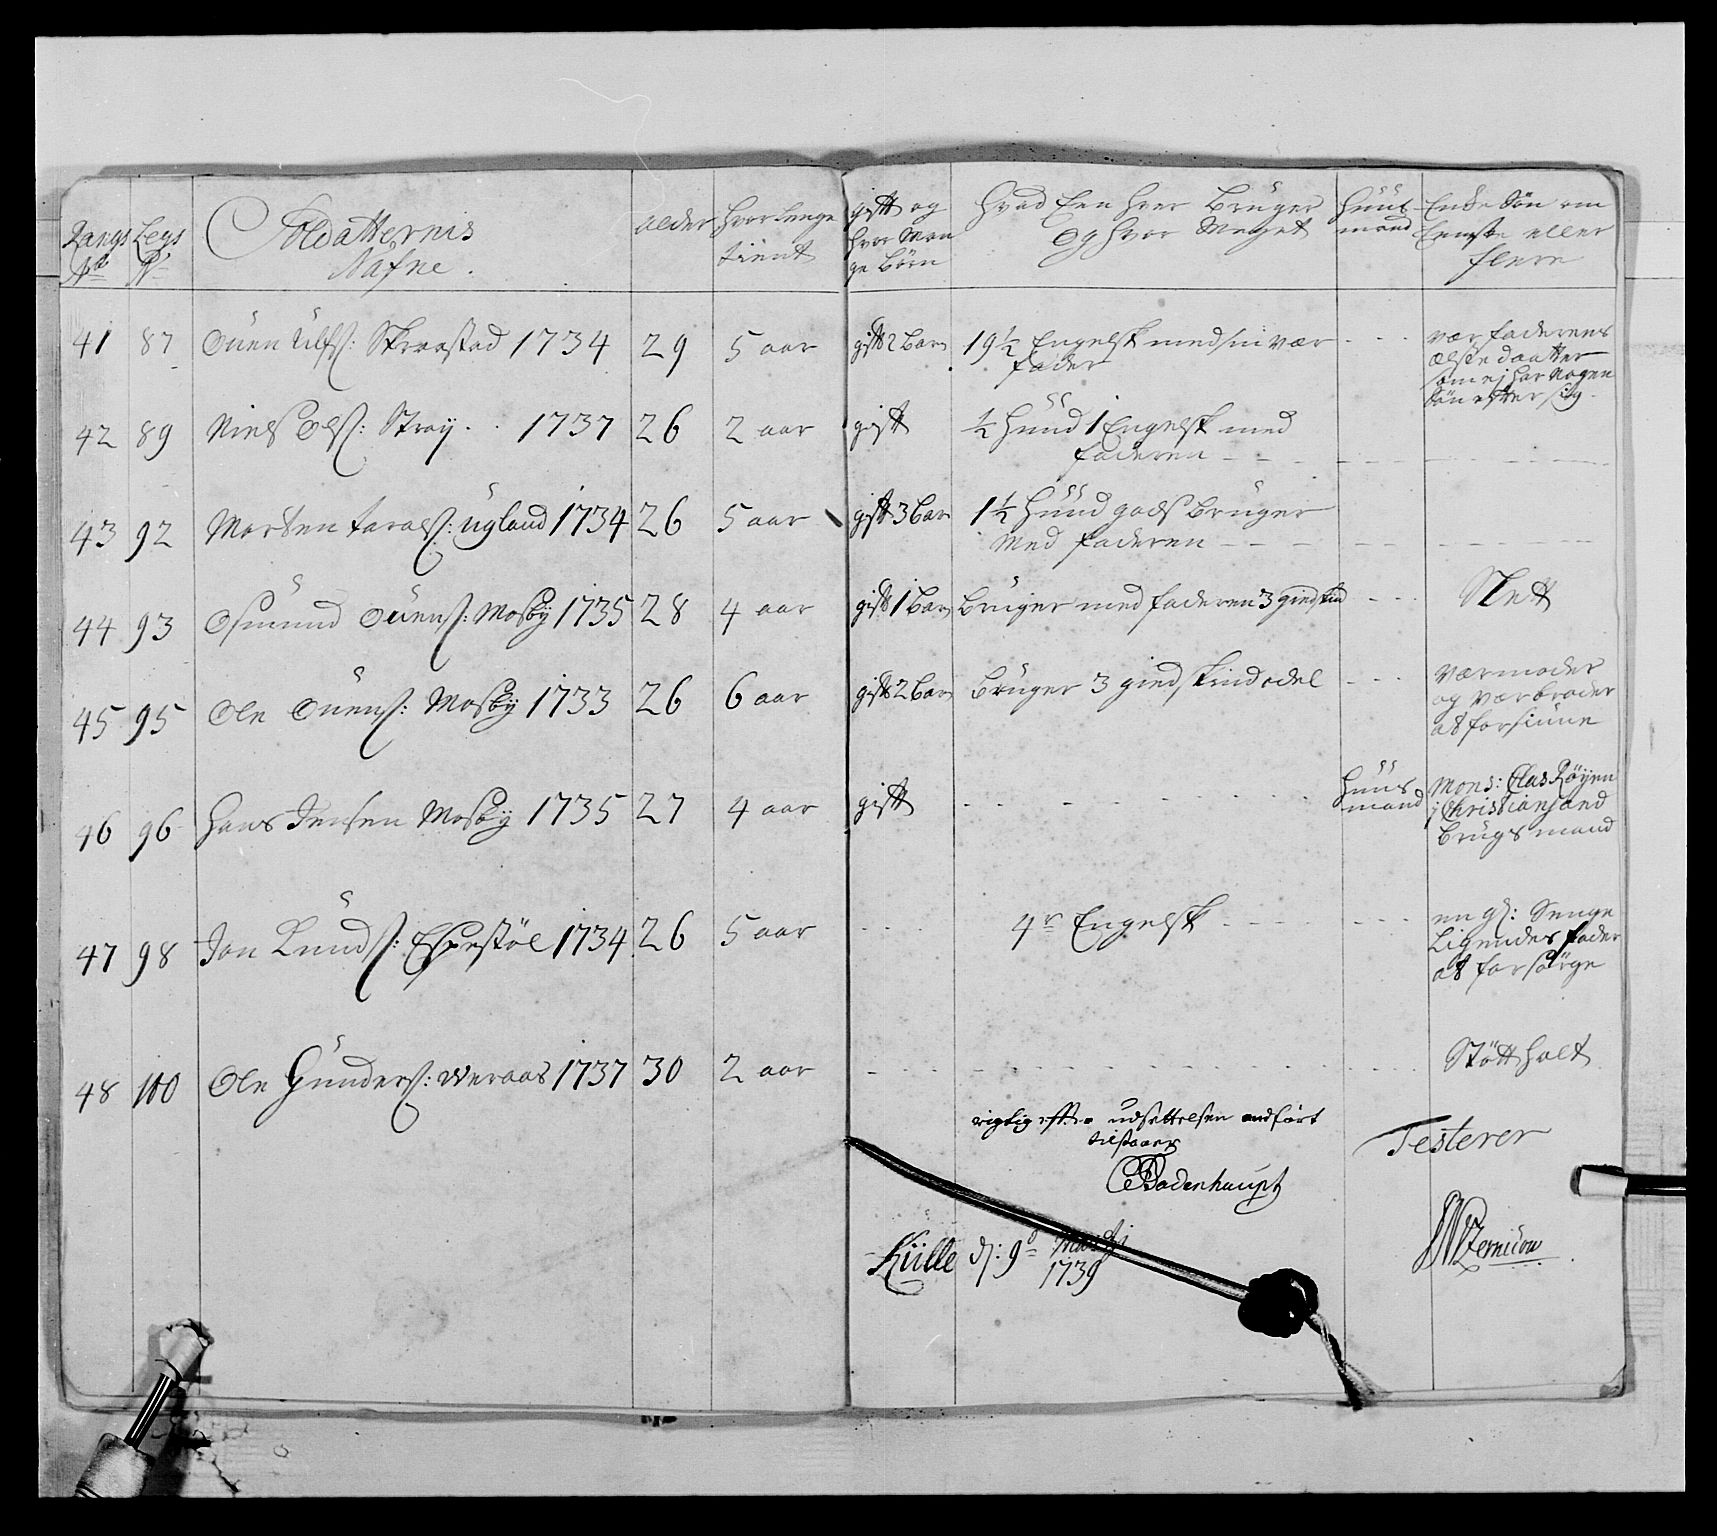 Rangs No
Legs No
Soldatternis Nafne.
alder
hvor lenge tient
gift og hvor Mange børn
Hvad Een hver Bruger og hvor Meget
Huusmand
Enke Søn om Eenste eller flere
41 87 Ouen Ulfs: Straastad 1734 29 5 aar gift 2 Barn 19½ Engelsk med sin vær fader - - - vær faderens ælste daatter som ej har Nogen Søn efter sig
42 89 Niels Ols: Stray . . 1737 26 2 aar gift ½ Huud 1 Engelsk med faderen - - -
43 92 Morten taralds: ugland 1734 26 5 aar gift 3 Barn 1½ Huud gods Bruger Med faderen - - -
44 93 Osmund Ouens: Mosby 1735 28 4 aar gift 1 Barn Bruger med faderen 3 giedskind - - - Slett
45 95 Ole Ouens: Mosby 1733 26 6 aar gift 2 Barn Bruger 3 giedskind odel - - - værmoder og værbroder at forsiune
46 96 Hans Jensen Mosby 1735 27 4 aar gift - - - Huusmand Mons: Clas Røyen i Christiansand Brugsmand
47 98 Jon Knuds: Espestøl 1734 26 5 aar - - - 4r Engelsk - - - en gl: Senge Ligendes fader at forsørge
48 100 Ole Gunders: Weraas 1737 30 2 aar - - - Støtt halt
rigtig efter udsettelsen andført
tilstaaes
Bodenhaupt
Testerer
Külle d: 9d Martij
1739